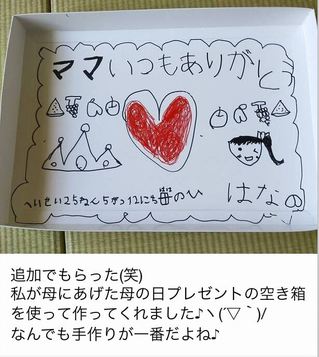 ママいつもありがとう
へいせい25ねん5がつ12にち母のひ
はなの
追加でもらった(笑)
私が母にあげた母の日プレゼントの空き箱
を使って作ってくれました♪ヽ(´▽｀)/
なんでも手作りが一番だよね♪